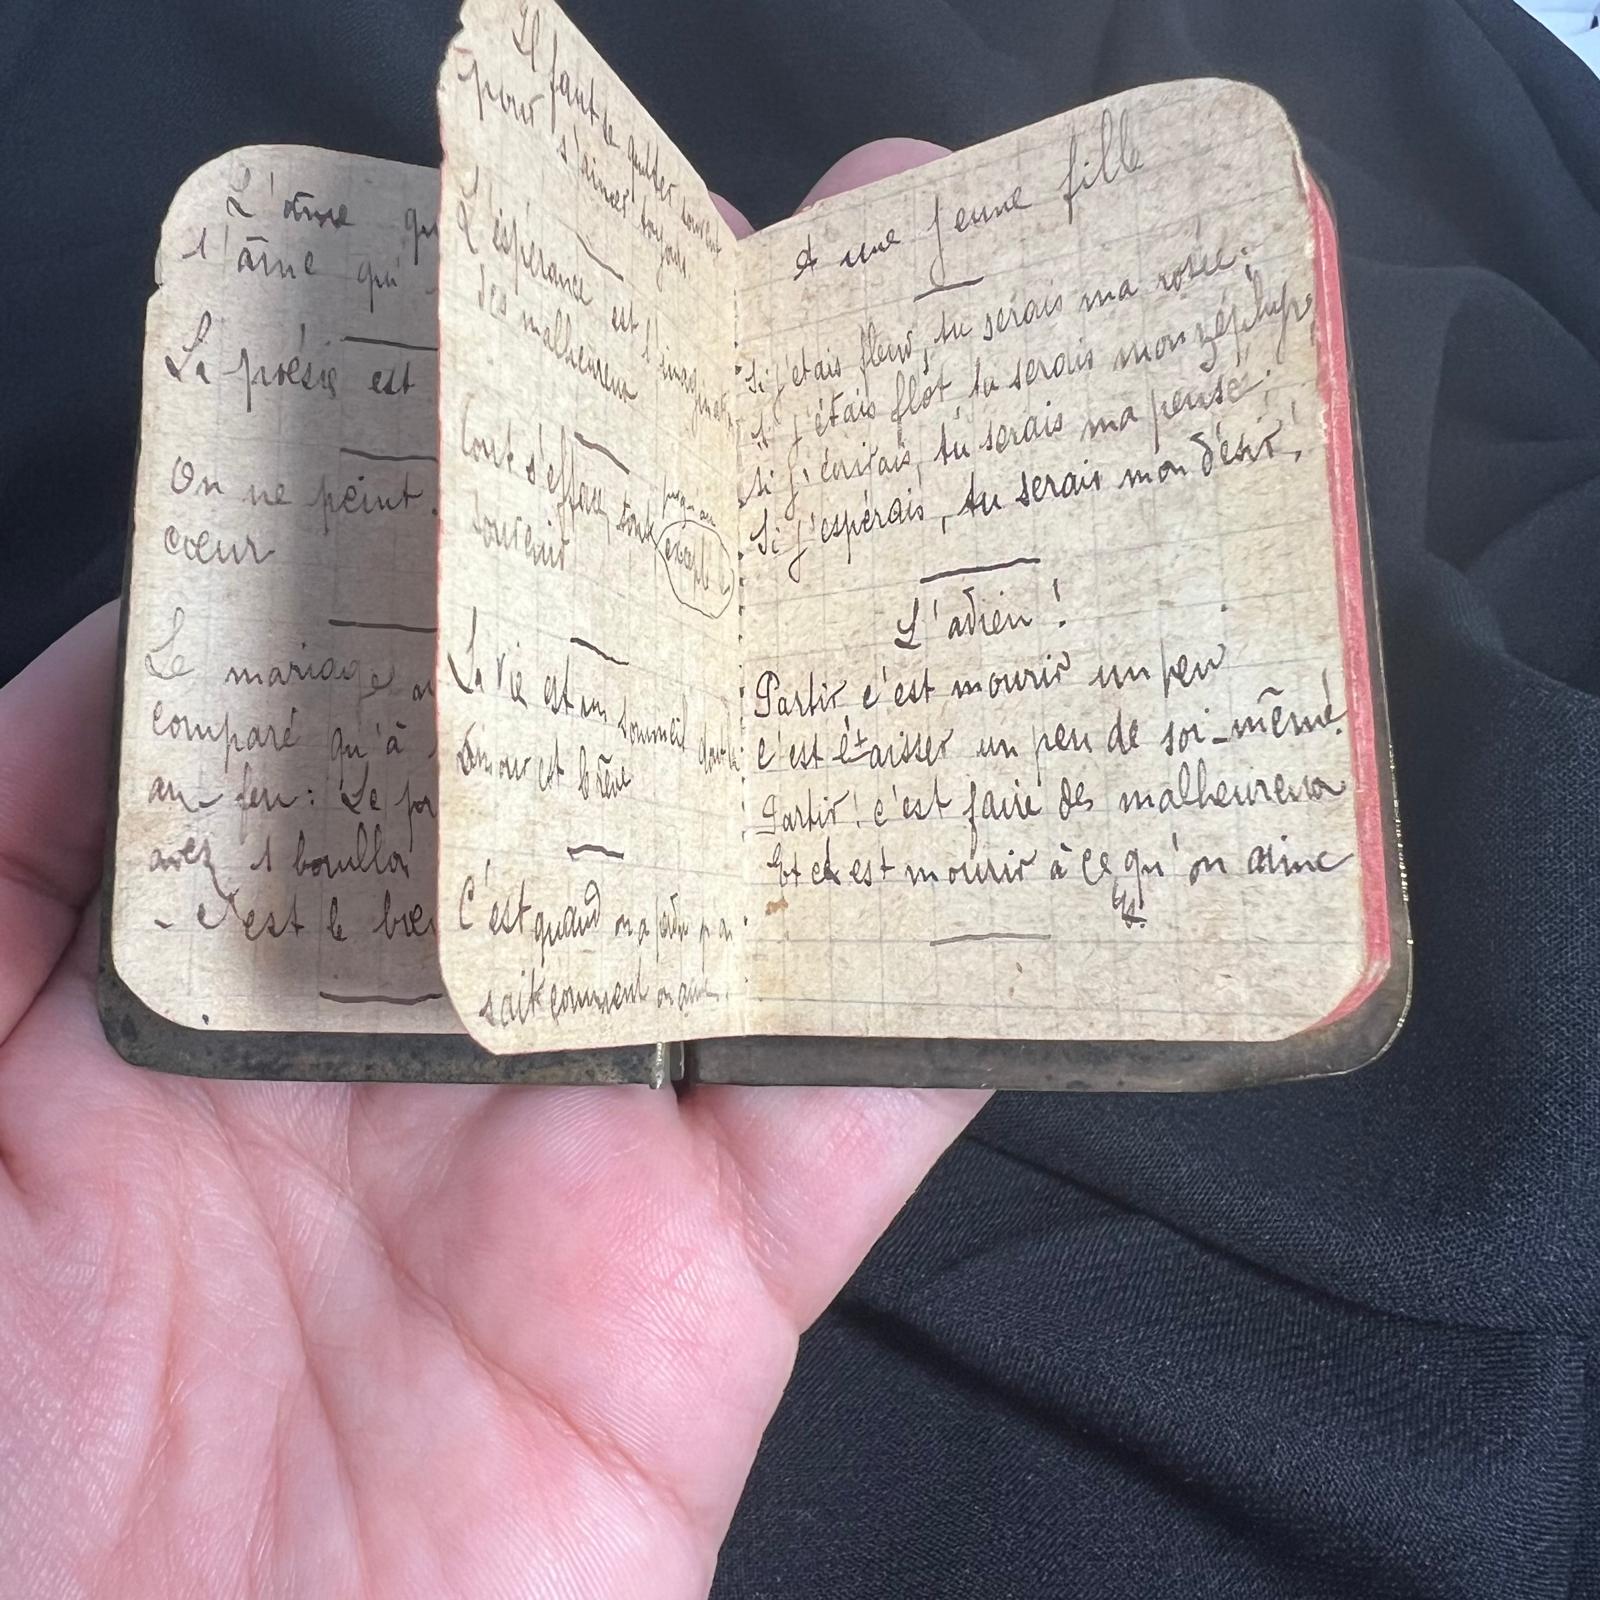 L'âme
l'âme qu'
La poésie est
On ne peint
cœur
Le mariage
comparé qu'à
au feu : Le
avez 1 bouillon
- c'est le
Il faut se quitter souvent
pour s'aimer toujours
L'espérance est l'imagination
des malheureux
Tout s'efface, tout excepté
souvenir
La vie est un sommeil dont l'
amour est le rêve
C'est quand on a perdu
sait comment on aime.
A une jeune fille
Si j'étais fleur, tu serais ma rosée.
Si j'étais flot tu serais mon zéphyr,
Si j'écrivais, tu serais ma pensée;
Si j'espérais, tu serais mon désir!
L'adieu !
Partir c'est mourir un peu
c'est laisser un peu de soi-même!
Partir! c'est faire des malheureux
Et c'est mourir à ce qu'on aime